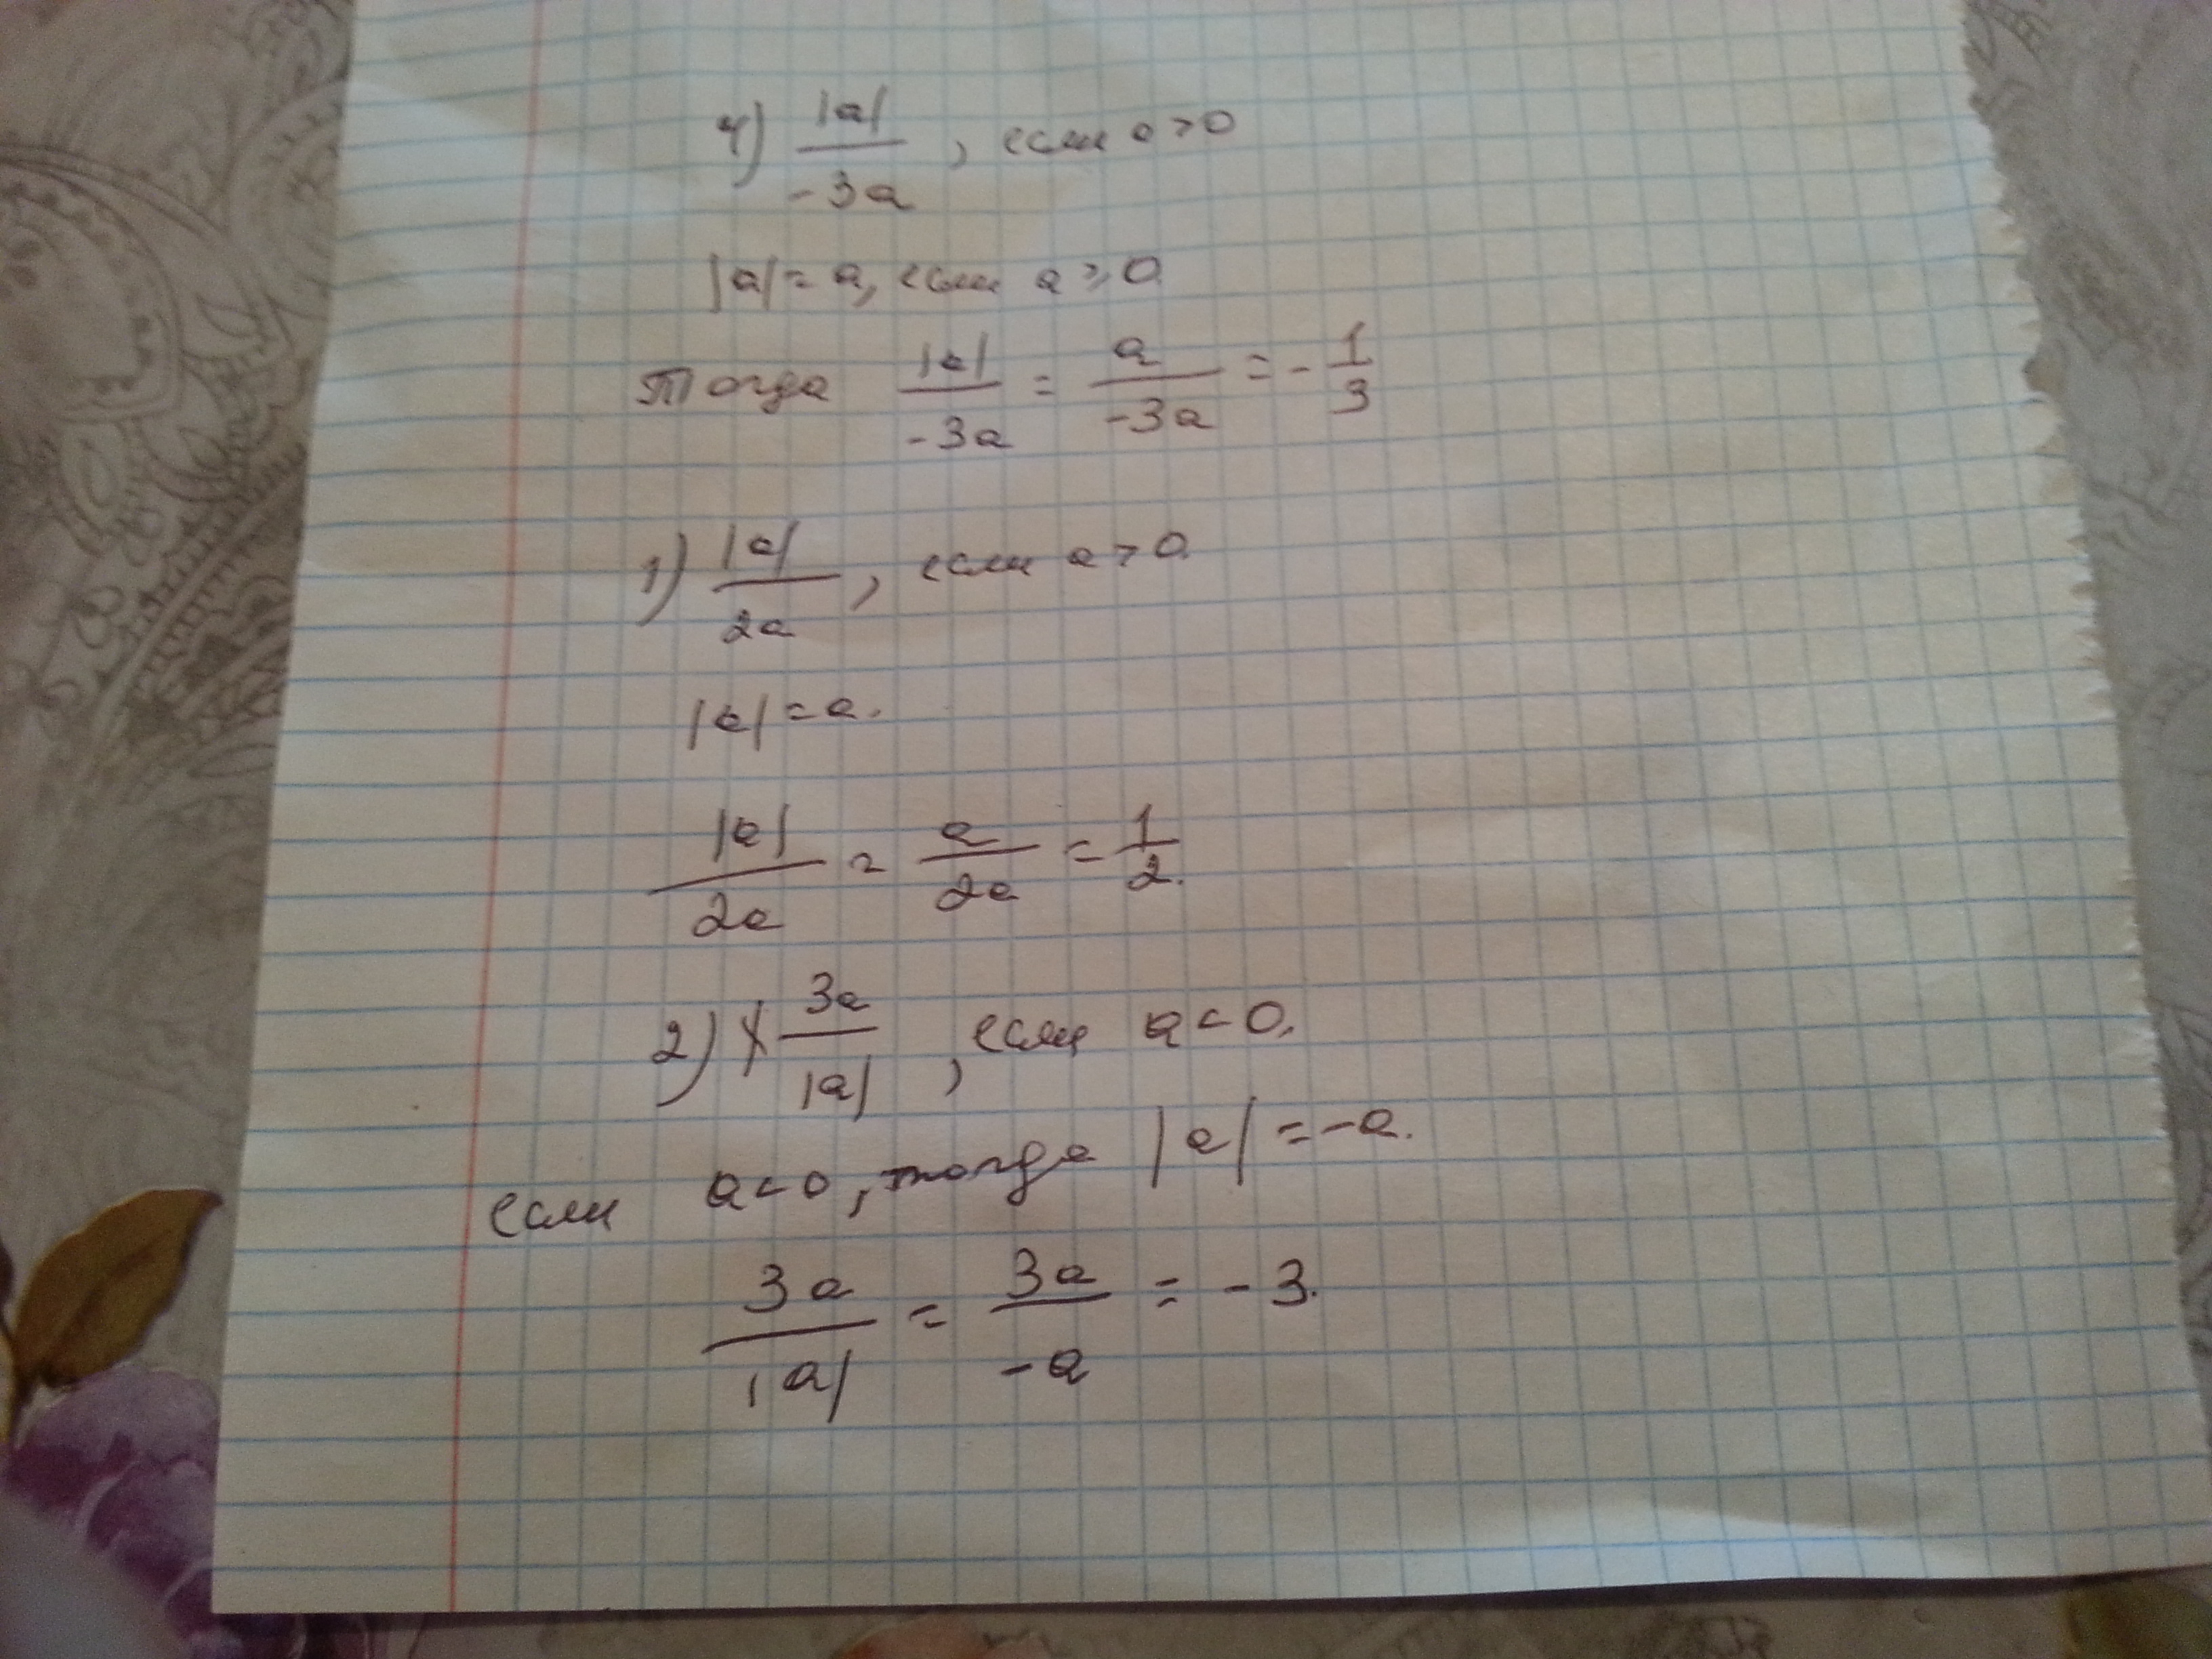 4) |a|/-3a, если a>0
|a|=a, если a≥0.
Тогда |a|/-3a = a/-3a = -1/3
1) |a|/2a, если a>0.
|a|=a.
|a|/2a = a/2a = 1/2.
2) 3a/|a|, если a<0.
если a<0, тогда |a|=-a.
3a/|a| = 3a/-a = -3.